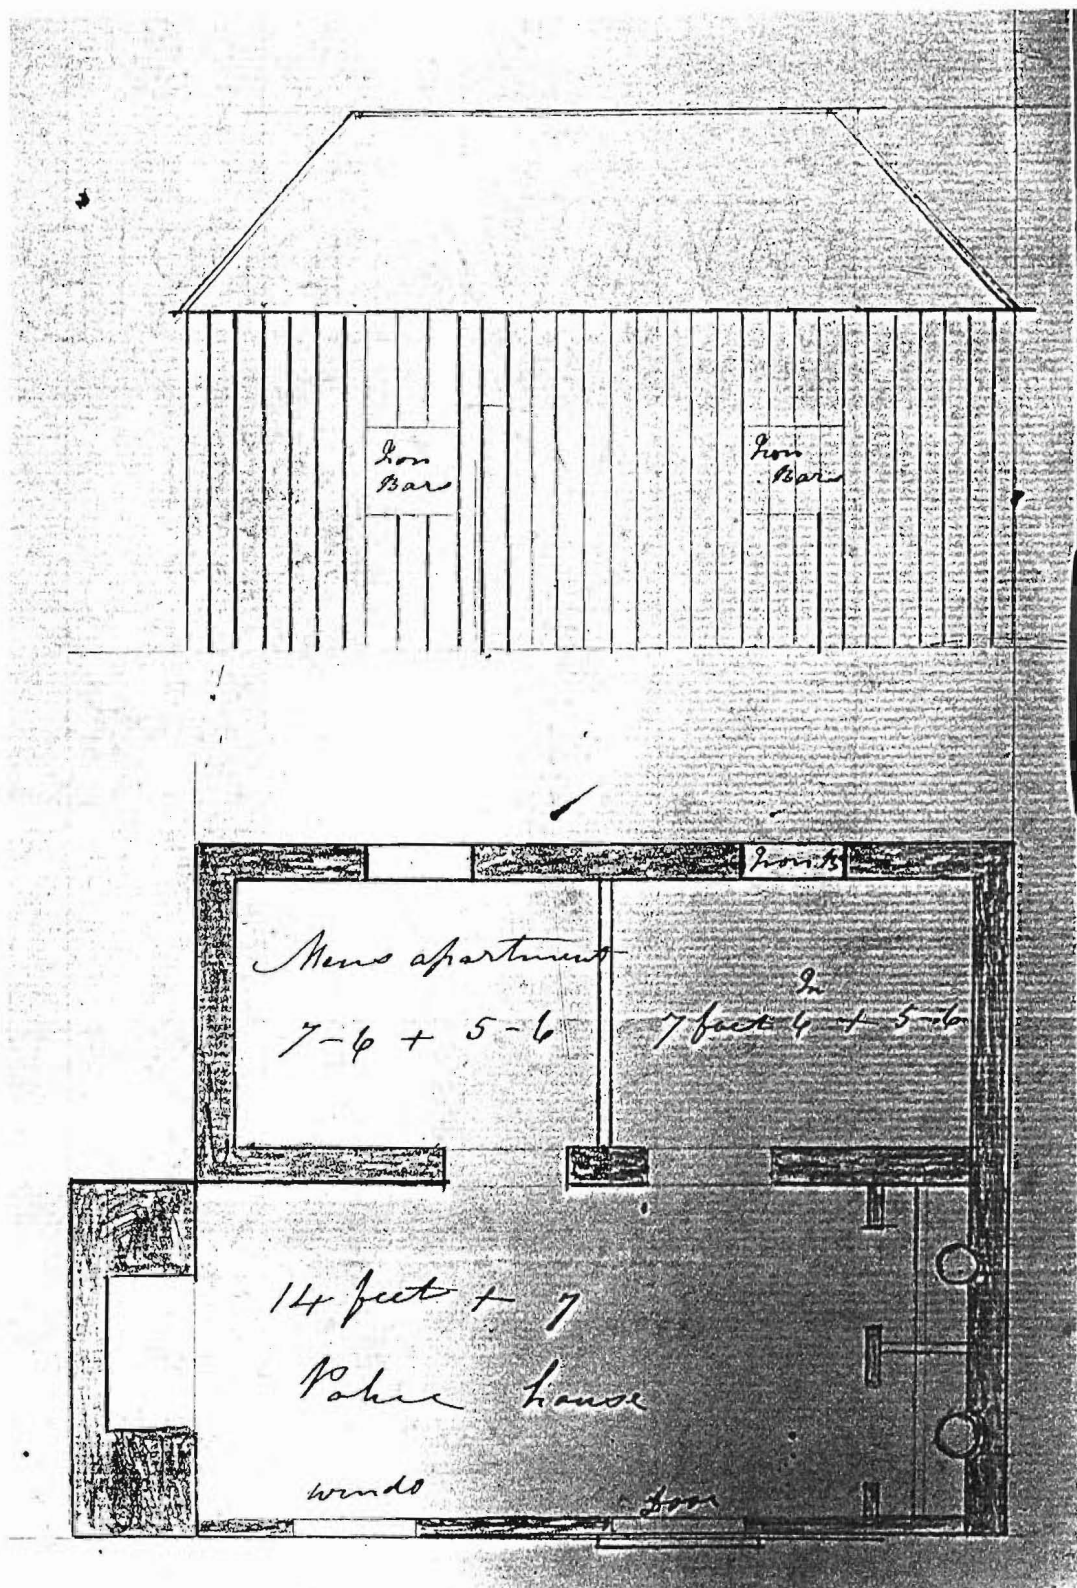 Iron
Bars
Iron
Bars
Iron B
Mens apartment
7-6 + 5-6
In
7 feet 6 + 5-6
14 feet + 7
Police house
windo
Door